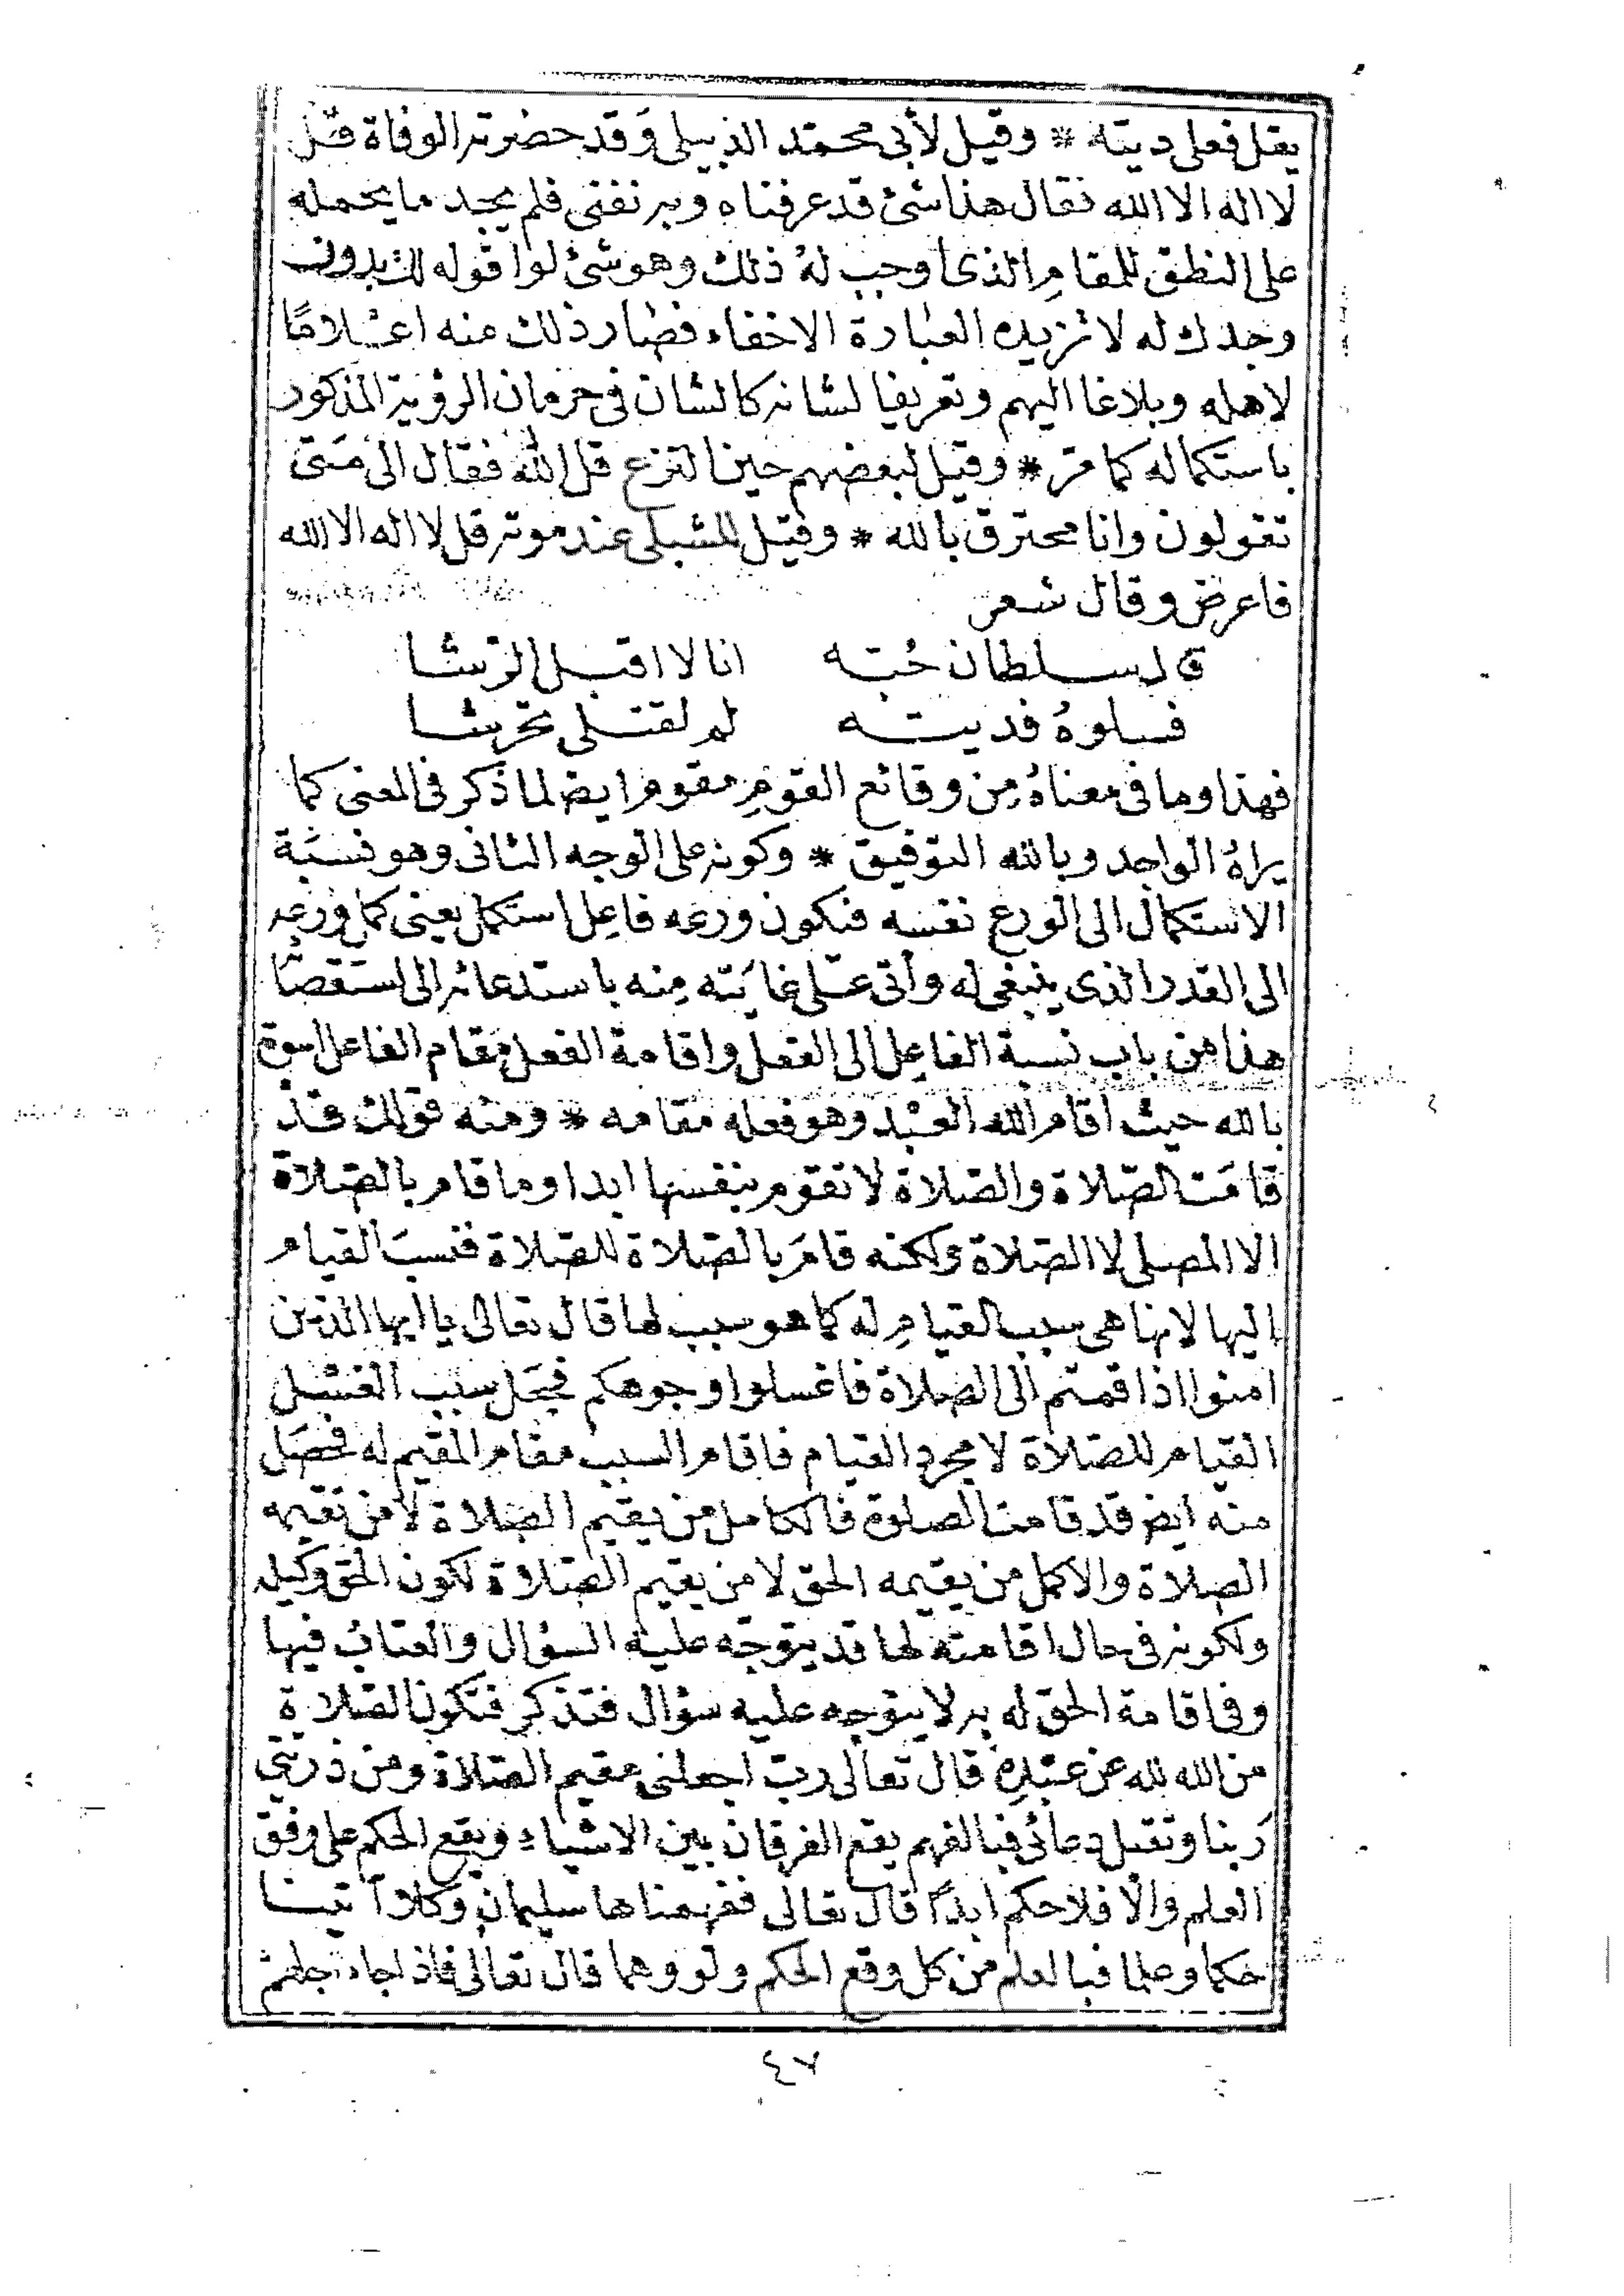 يقل فعلى ديته * وقيل لأبى محمّد الذبيلى وَقد حضرته الوفاة قل
لا اله الا الله فقال هذا شئ قد عرفناه وبه نفنى فلم يجد ما يحمله
على النطق للمقامِ الذى اوجب لهُ ذلك وهو شئ لو اقوله لك بدون
وجدك له لا تزيده العبارة الا خفاء فصار ذلك منه اعلامًا
لاهله وبلاغا اليهم وتعريفا لشانه كالشان فى حرمان الرؤية المذكور
باستكماله كما مرّ * وقيل لبعضهم حين النزع قل الله فقال الى مَتى
تقولون وانا محترق بالله * وقيل للشبلى عند موته قل لا اله الا الله
فاعرض وقال شعر
قال سلطان حُبّه انا لا اقبل الرشا
فسلوهُ فديته لم لقتلى تحرشا
فهذا وما فى معناهُ مِن وقائع القومِ مقوم ايضا لما ذكر فى المعنى كما
يراهُ الواجد وبالله التوفيق * وكونه على الوجه الثانى وهو نسبَة
الاستكمال الى الورع نفسه فيكون ورعه فاعل استكمل يعنى كمل ورعه
الى القدر الذى ينبغى له وأتى عَلى غايَته مِنه باستدعائه الى استقصا
هذا من باب نسبة الفاعِل الى الفعل واقامة الفعل مقام الفاعل اسوة
بالله حيث اقام الله العَبْد وهو فعله مقامه * ومنه قولك قد
قامَت الصّلاة والصّلاة لا تقوم بنفسها ابدا وما قام بالصّلاة
الا المصلى لا الصّلاة ولكنه قامَ بالصّلاة للصّلاة فنسبَ القيام
اليها لانها هى سبب القيامِ له كما هو سبب لها قال تعالى يا ايها الذين
امنوا اذا قمتم الى الصلاة فاغسلوا وجوهكم فجعَل سبب الغسْل
القيام للصّلاة لا مجرد القيام فاقام السبب مقام المقيم له فحصَل
منه ايضا قد قامت الصلوة فالكامل من يقيم الصّلاة لا من تقيمه
الصلاة والاكمل من يقيمه الحق لا من يقيم الصّلاة لكون الحق وكيله
ولكونه فى حال اقامته لها قد يتوجّه عليه السؤال والعتاب فيها
وفى اقامة الحق له به لا يتوجه عليه سؤال فتذكر فتكون الصّلاة
من الله لله عن عَبْدِهِ قال تعالى ربّ اجعلنى مقيم الصّلاة ومن ذريّتى
رَبنا وتقبل دعائى فبالفهم يقع الفرقان بين الاشياء ويقع الحكم على وفق
العلم والّا فلا حكم ابدًا قال تعالى ففهمناها سليمان وكلا آتينا
حكما وعلما فبالعلم من كل وقع الحكم ولو وهما قال تعالى فاذا جاء اجلهم
٤٧